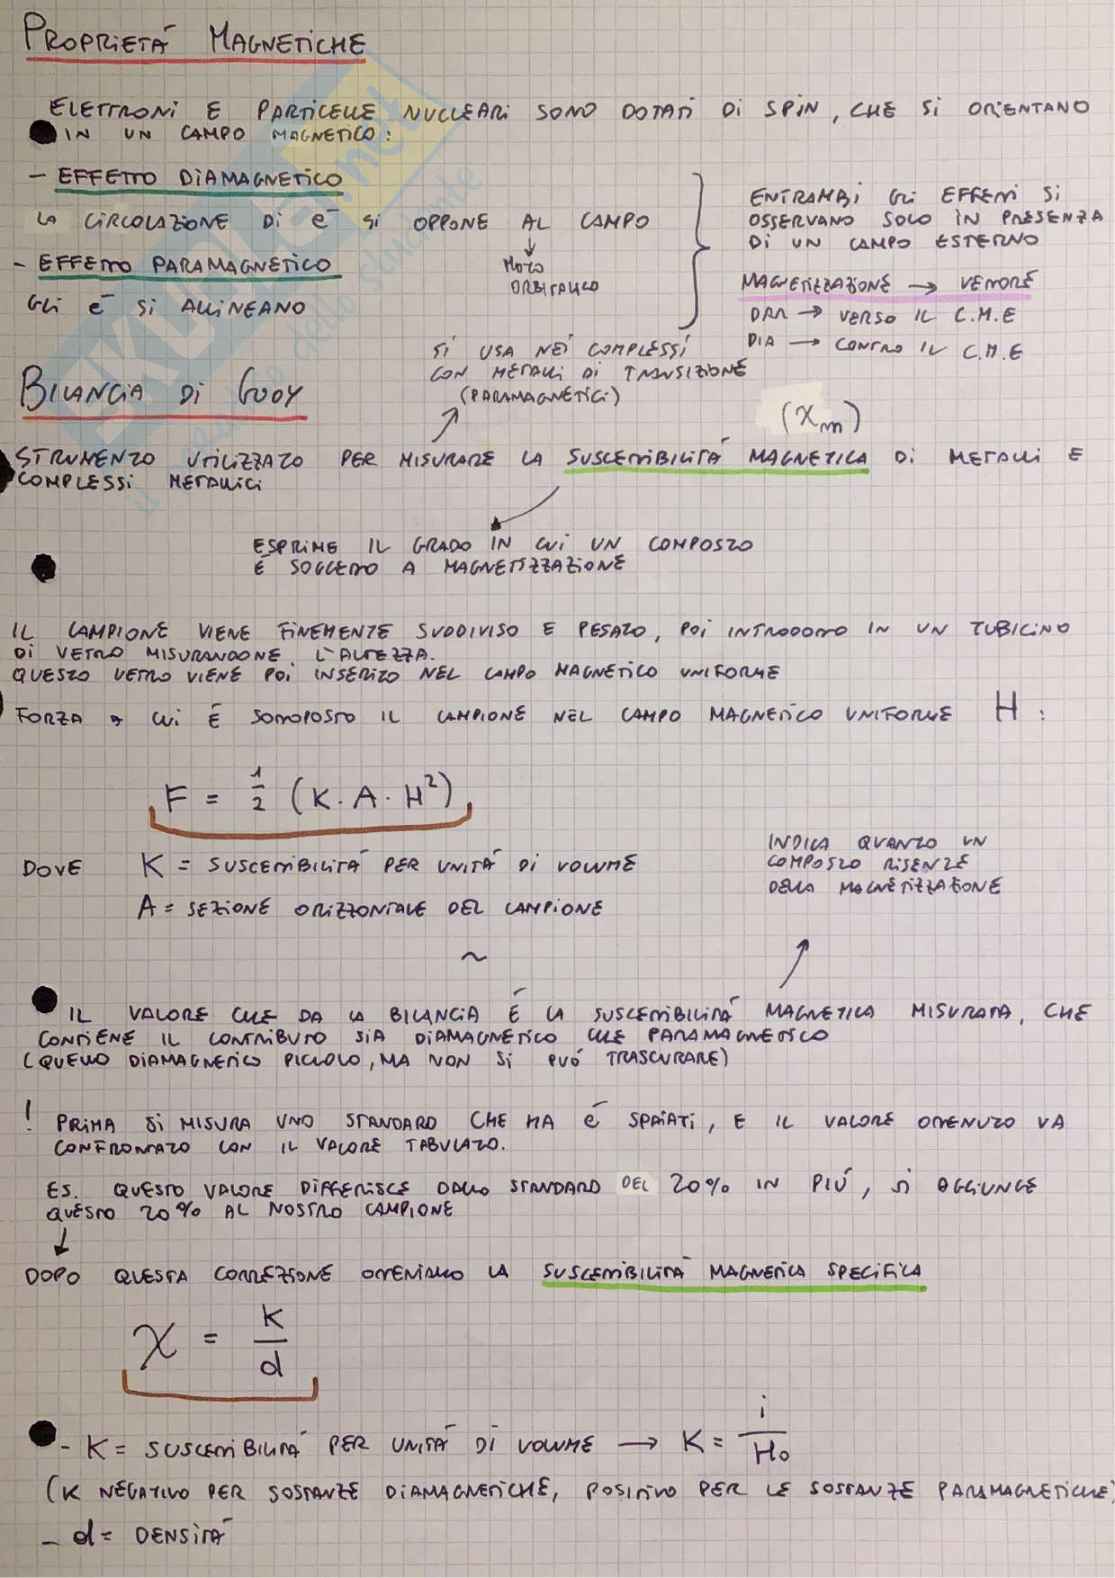 PROPRIETÁ MAGNETICHE
ELETTRONI E PARTICELLE NUCLEARI SONO DOTATI DI SPIN, CHE SI ORIENTANO
IN UN CAMPO MAGNETICO:
- EFFETTO DIAMAGNETICO
LA CIRCOLAZIONE DI e⁻ SI OPPONE AL CAMPO
↓
MOTO
ORBITALICO
- EFFETTO PARAMAGNETICO
GLI e⁻ SI ALLINEANO
ENTRAMBI GLI EFFETTI SI
OSSERVANO SOLO IN PRESENZA
DI UN CAMPO ESTERNO
MAGNETIZZAZIONE → VETTORE
PARA → VERSO IL C.M.E
DIA → CONTRO IL C.M.E
SI USA NEI COMPLESSI
CON METALLI DI TRANSIZIONE
(PARAMAGNETICI)
BILANCIA DI GUOY
(χm)
STRUMENTO UTILIZZATO PER MISURARE LA SUSCETTIBILITÁ MAGNETICA DI METALLI E
COMPLESSI METALLICI
ESPRIME IL GRADO IN CUI UN COMPOSTO
É SOGGETTO A MAGNETIZZAZIONE
IL CAMPIONE VIENE FINEMENTE SUDDIVISO E PESATO, POI INTRODOTTO IN UN TUBICINO
DI VETRO MISURANDONE L'ALTEZZA.
QUESTO VETRO VIENE POI INSERITO NEL CAMPO MAGNETICO UNIFORME
FORZA A CUI É SOTTOPOSTO IL CAMPIONE NEL CAMPO MAGNETICO UNIFORME H:
F = 1/2 (K·A·H²)
DOVE K = SUSCETTIBILITÁ PER UNITÁ DI VOLUME
A = SEZIONE ORIZZONTALE DEL CAMPIONE
INDICA QUANTO UN
COMPOSTO RISENTE
DELLA MAGNETIZZAZIONE
~
IL VALORE CHE DA LA BILANCIA É LA SUSCETTIBILITÁ MAGNETICA MISURATA, CHE
CONTIENE IL CONTRIBUTO SIA DIAMAGNETICO CHE PARAMAGNETICO
(QUELLO DIAMAGNETICO PICCOLO, MA NON SI PUÓ TRASCURARE)
! PRIMA SI MISURA UNO STANDARD CHE HA e⁻ SPAIATI, E IL VALORE OTTENUTO VA
CONFRONTATO CON IL VALORE TABULATO.
ES. QUESTO VALORE DIFFERISCE DALLO STANDARD DEL 20% IN PIÚ, SI AGGIUNGE
QUESTO 20% AL NOSTRO CAMPIONE
↓
DOPO QUESTA CORREZIONE OTTENIAMO LA SUSCETTIBILITÁ MAGNETICA SPECIFICA
χ = K/d
- K = SUSCETTIBILITÁ PER UNITÁ DI VOLUME → K = i/H₀
(K NEGATIVO PER SOSTANZE DIAMAGNETICHE, POSITIVO PER LE SOSTANZE PARAMAGNETICHE)
- d = DENSITÁ